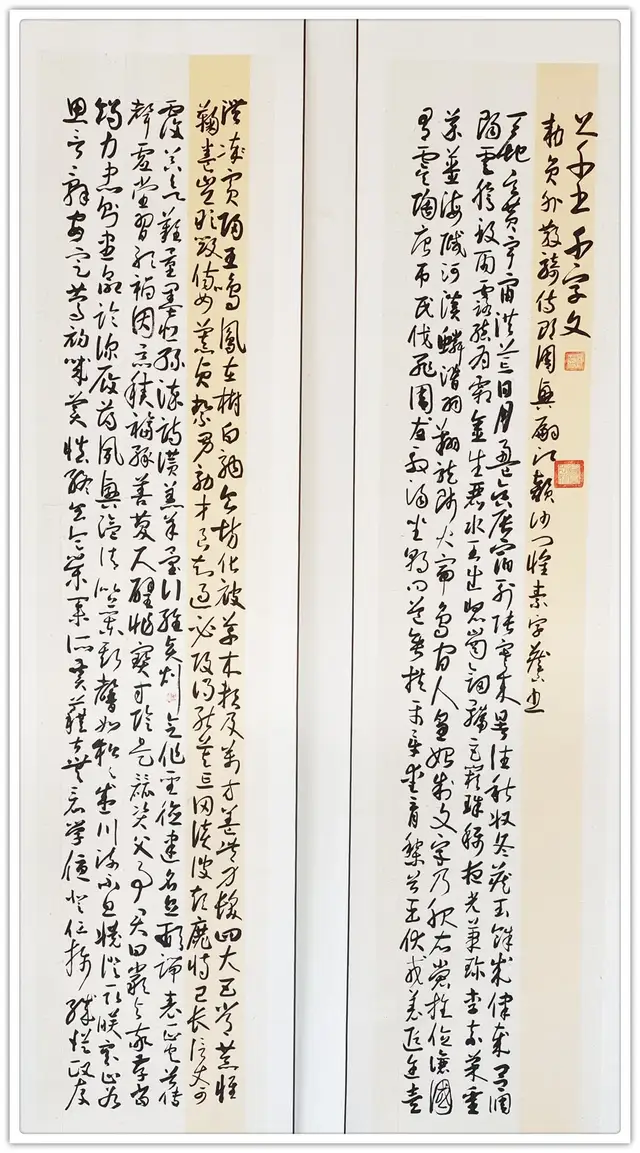 千字文
敕員外散騎侍郎周興嗣次韻沙门懷素字藏真书
天地玄黃宇宙洪荒日月盈昃辰宿列張寒來暑往秋收冬藏閏餘成歲律呂調
陽雲騰致雨露結為霜金生麗水玉出崑崗劍號巨闕珠稱夜光菓珍李柰菜重
芥薑海鹹河淡鱗潛羽翔龍師火帝鳥官人皇始制文字乃服衣裳推位讓國
有虞陶唐弔民伐罪周發殷湯坐朝問道垂拱平章愛育黎首臣伏戎羌遐邇壹
體率賓歸王鳴鳳在樹白駒食場化被草木賴及萬方蓋此身髮四大五常恭惟
鞠養豈敢毀傷女慕貞絜男效才良知過必改得能莫忘罔談彼短靡恃己長信使可
覆器欲難量墨悲絲染詩讚羔羊景行維賢剋念作聖德建名立形端表正空谷傳
聲虛堂習聽禍因惡積福緣善慶尺璧非寶寸陰是競資父事君曰嚴與敬孝當
竭力忠則盡命臨深履薄夙興溫凊似蘭斯馨如松之盛川流不息淵澄取映容止若
思言辭安定篤初誠美慎終宜令榮業所基籍甚無竟學優登仕攝職從政存